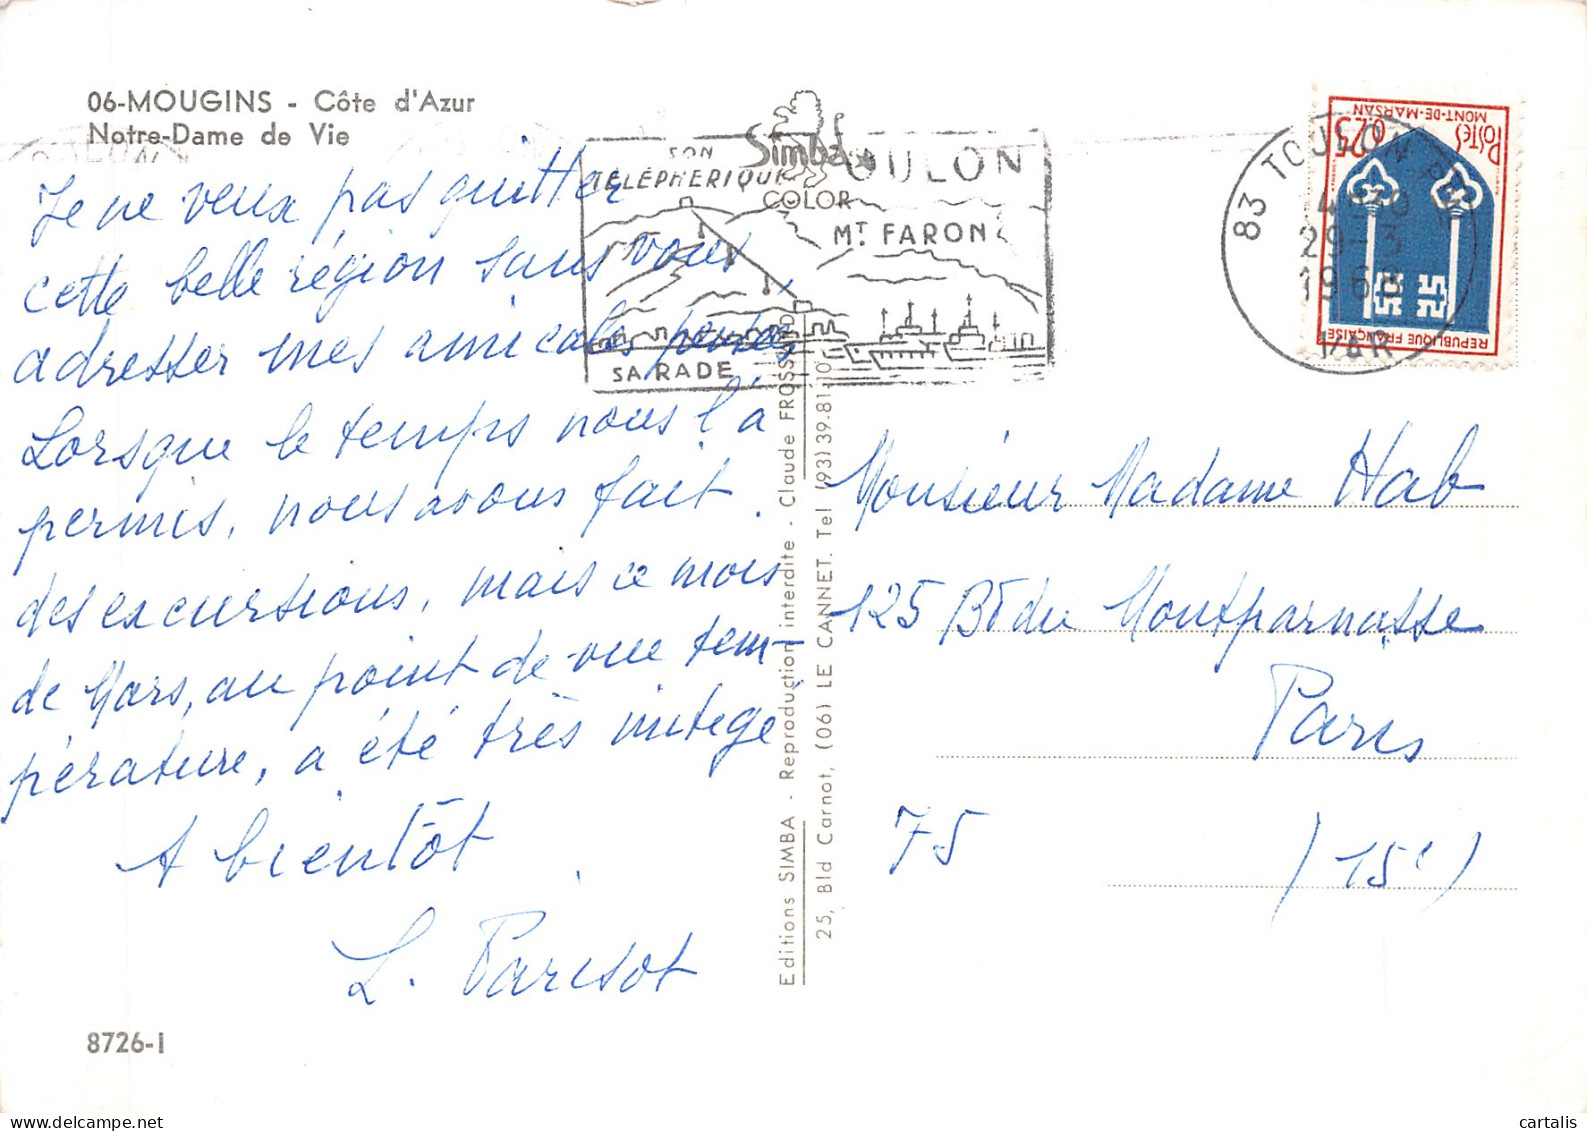 06-MOUGINS - Côte d'Azur
Notre-Dame de Vie
Je ne veux pas quitter
cette belle région sans vous
adresser mes amicales pensées
Lorsque le temps nous l'a
permis, nous avons fait
des excursions, mais ce mois
de Mars, au point de vue tem-
pérature, a été très mitegé
A bientôt
L. Parisot
8726-I
SON
TÉLÉPHERIQUE
TOULON
MT FARON
SA RADE
Simba
COLOR
Editions SIMBA - Reproduction interdite - Claude
25, Bld Carnot, (06) LE CANNET. Tel (93) 39-81-10
83 TOULON
29-3
196
VAR
POSTES
0,25
MONT-DE-MARSAN
REPUBLIQUE FRANÇAISE
Monsieur Madame Hab
125 Bd du Montparnasse
Paris
75 (15e)